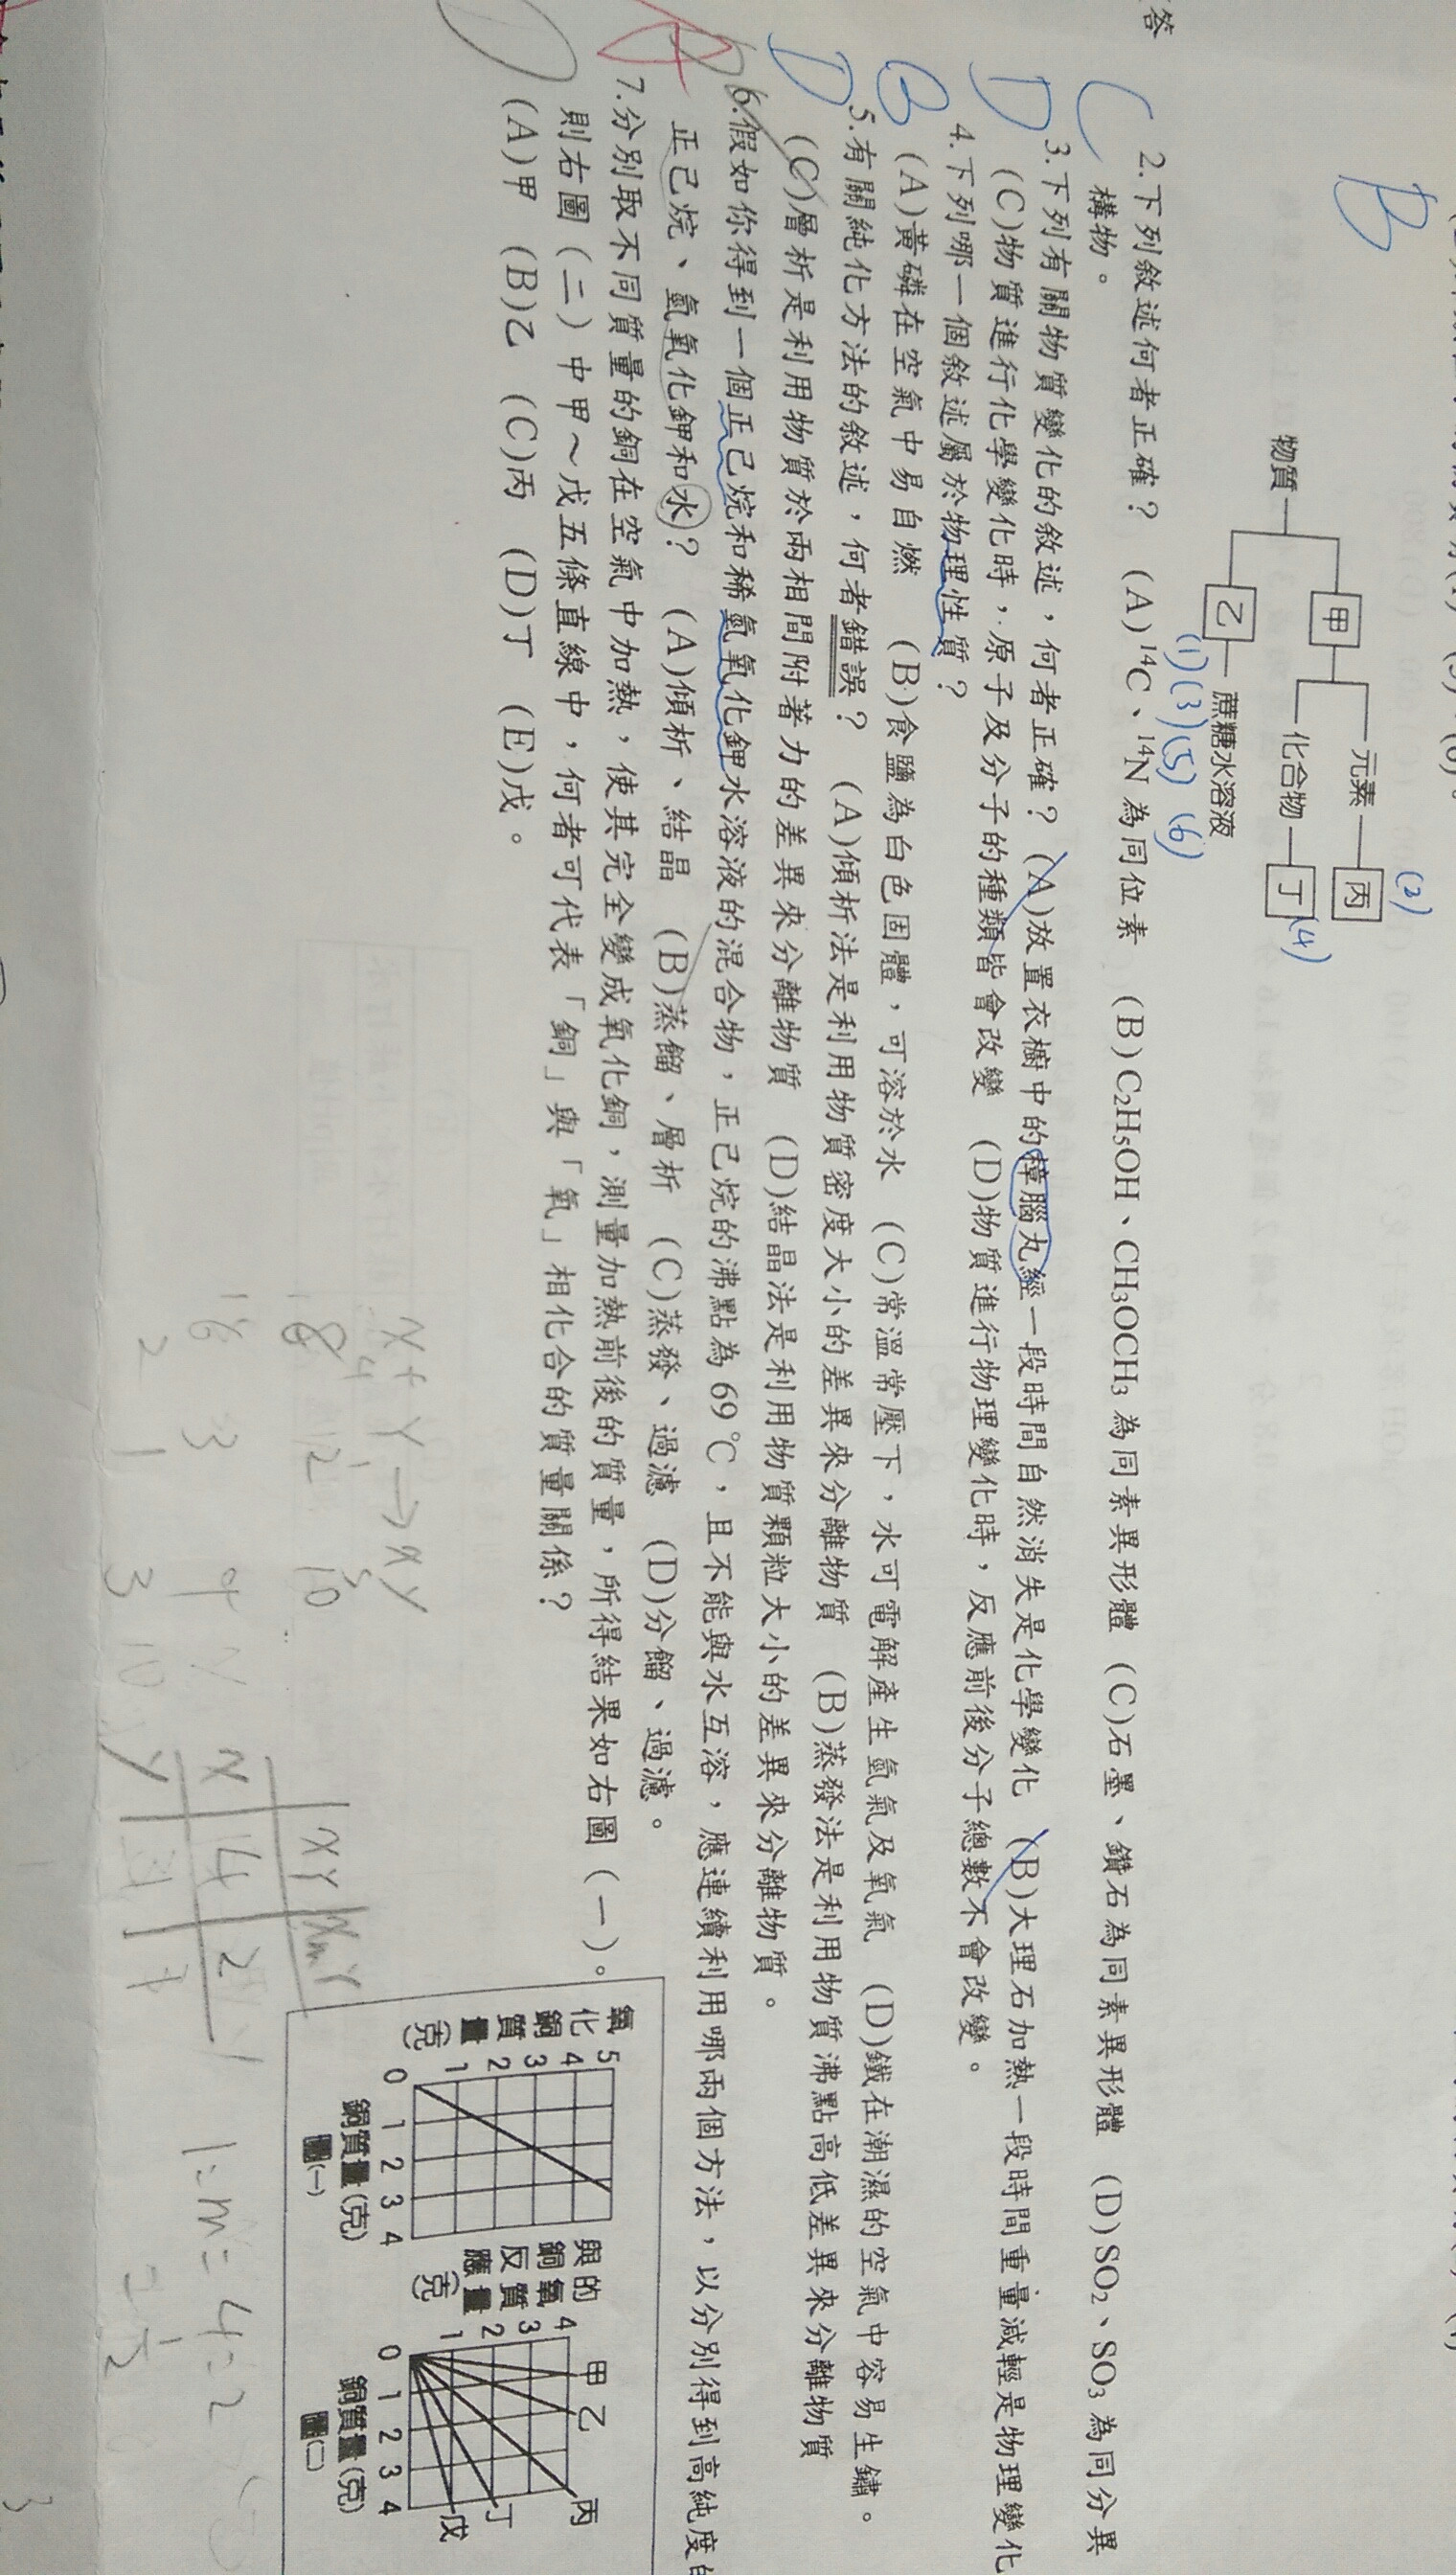 答
B
物質
甲
乙
元素
化合物
丙
丁
蔗糖水溶液
(2)
(4)
(1)(3)(5)(6)
C
2.下列敘述何者正確? (A)¹⁴C、¹⁴N為同位素 (B)C₂H₅OH、CH₃OCH₃為同素異形體 (C)石墨、鑽石為同素異形體 (D)SO₂、SO₃為同分異
構物。
D
3.下列有關物質變化的敘述,何者正確? (A)放置衣櫥中的樟腦丸經一段時間自然消失是化學變化 (B)大理石加熱一段時間重量減輕是物理變化
(C)物質進行化學變化時,原子及分子的種類皆會改變 (D)物質進行物理變化時,反應前後分子總數不會改變。
B
4.下列哪一個敘述屬於物理性質?
(A)黃磷在空氣中易自燃 (B)食鹽為白色固體,可溶於水 (C)常溫常壓下,水可電解產生氫氣及氧氣 (D)鐵在潮濕的空氣中容易生鏽。
D
5.有關純化方法的敘述,何者錯誤? (A)傾析法是利用物質密度大小的差異來分離物質 (B)蒸發法是利用物質沸點高低差異來分離物質
(C)層析是利用物質於兩相間附著力的差異來分離物質 (D)結晶法是利用物質顆粒大小的差異來分離物質。
6.假如你得到一個正己烷和稀氫氧化鉀水溶液的混合物,正己烷的沸點為69℃,且不能與水互溶,應連續利用哪兩個方法,以分別得到高純度的
正己烷、氫氧化鉀和水? (A)傾析、結晶 (B)蒸餾、層析 (C)蒸發、過濾 (D)分餾、過濾。
7.分別取不同質量的銅在空氣中加熱,使其完全變成氧化銅,測量加熱前後的質量,所得結果如右圖(一)。
則右圖(二)中甲~戊五條直線中,何者可代表「銅」與「氧」相化合的質量關係?
(A)甲 (B)乙 (C)丙 (D)丁 (E)戊。
氧化銅質量(克)
5
4
3
2
1
0 1 2 3 4
銅質量(克)
圖(一)
與銅反應的氧質量(克)
4
3
2
1
0 1 2 3 4
甲
乙
丙
丁
戊
銅質量(克)
圖(二)
x + y → xy
4 1 5
8 2 10
2 1 3
xy
x
y
1:m=4:2